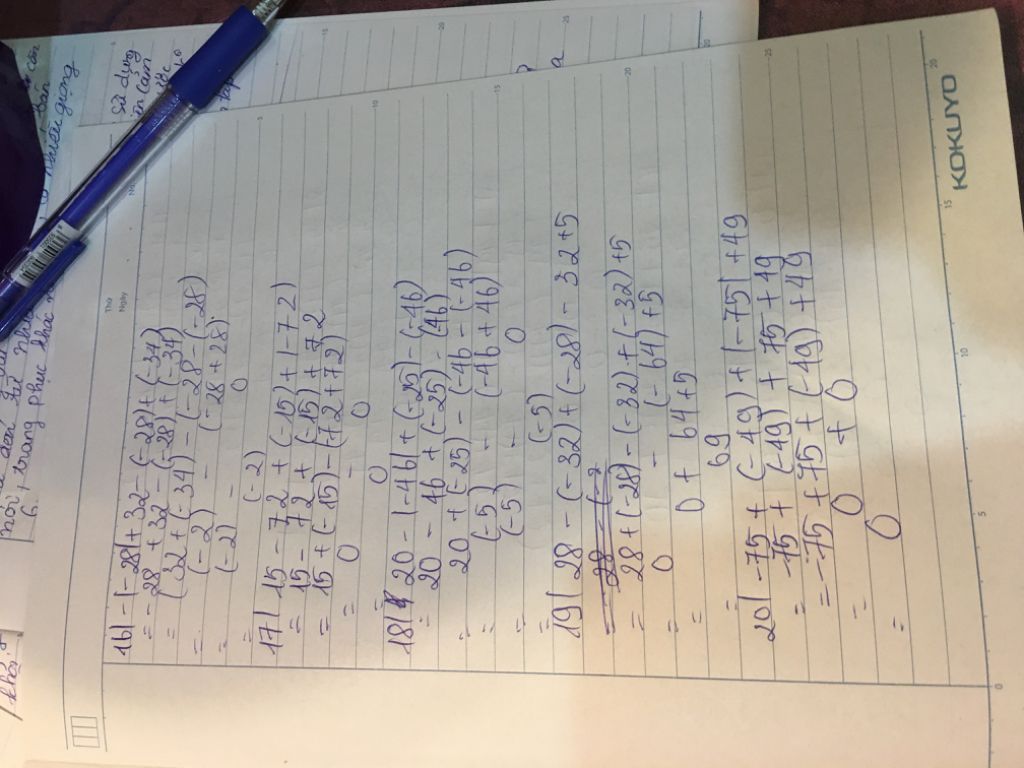 16) - |-28| + 32 - (-28) + (-34)
= -28 + 32 - (-28) + (-34)
= (32 + (-34) - (-28 - (-28)
= (-2) - (-28 + 28)
= (-2) - 0
= (-2)
17) 15 - 72 + (-15) + |-72)
= 15 - 72 + (-15) + 72
= 15 + (-15) - (72 + 72)
= 0 - 0
= 0
18) 20 - |-46| + (-25) - (-46)
= 20 - 46 + (-25) - (46)
= 20 + (-25) - (-46 - (-46)
= (-5) - (-46 + 46)
= (-5) - 0
= (-5)
19) 28 - (-32) + (-28) - 32 + 5
= 28 - (-
= 28 + (-28) - (-32) + (-32) + 5
= 0 - (-64) + 5
= 0 + 64 + 5
= 69
20) -75 + (-49) + |-75| + 49
= -75 + (-49) + 75 + 49
= -75 + 75 + (-49) + 49
= 0 + 0
= 0
KOKUYO
Thứ
Ngày
5
10
15
20
25
0
5
10
15
20
Sử dụng